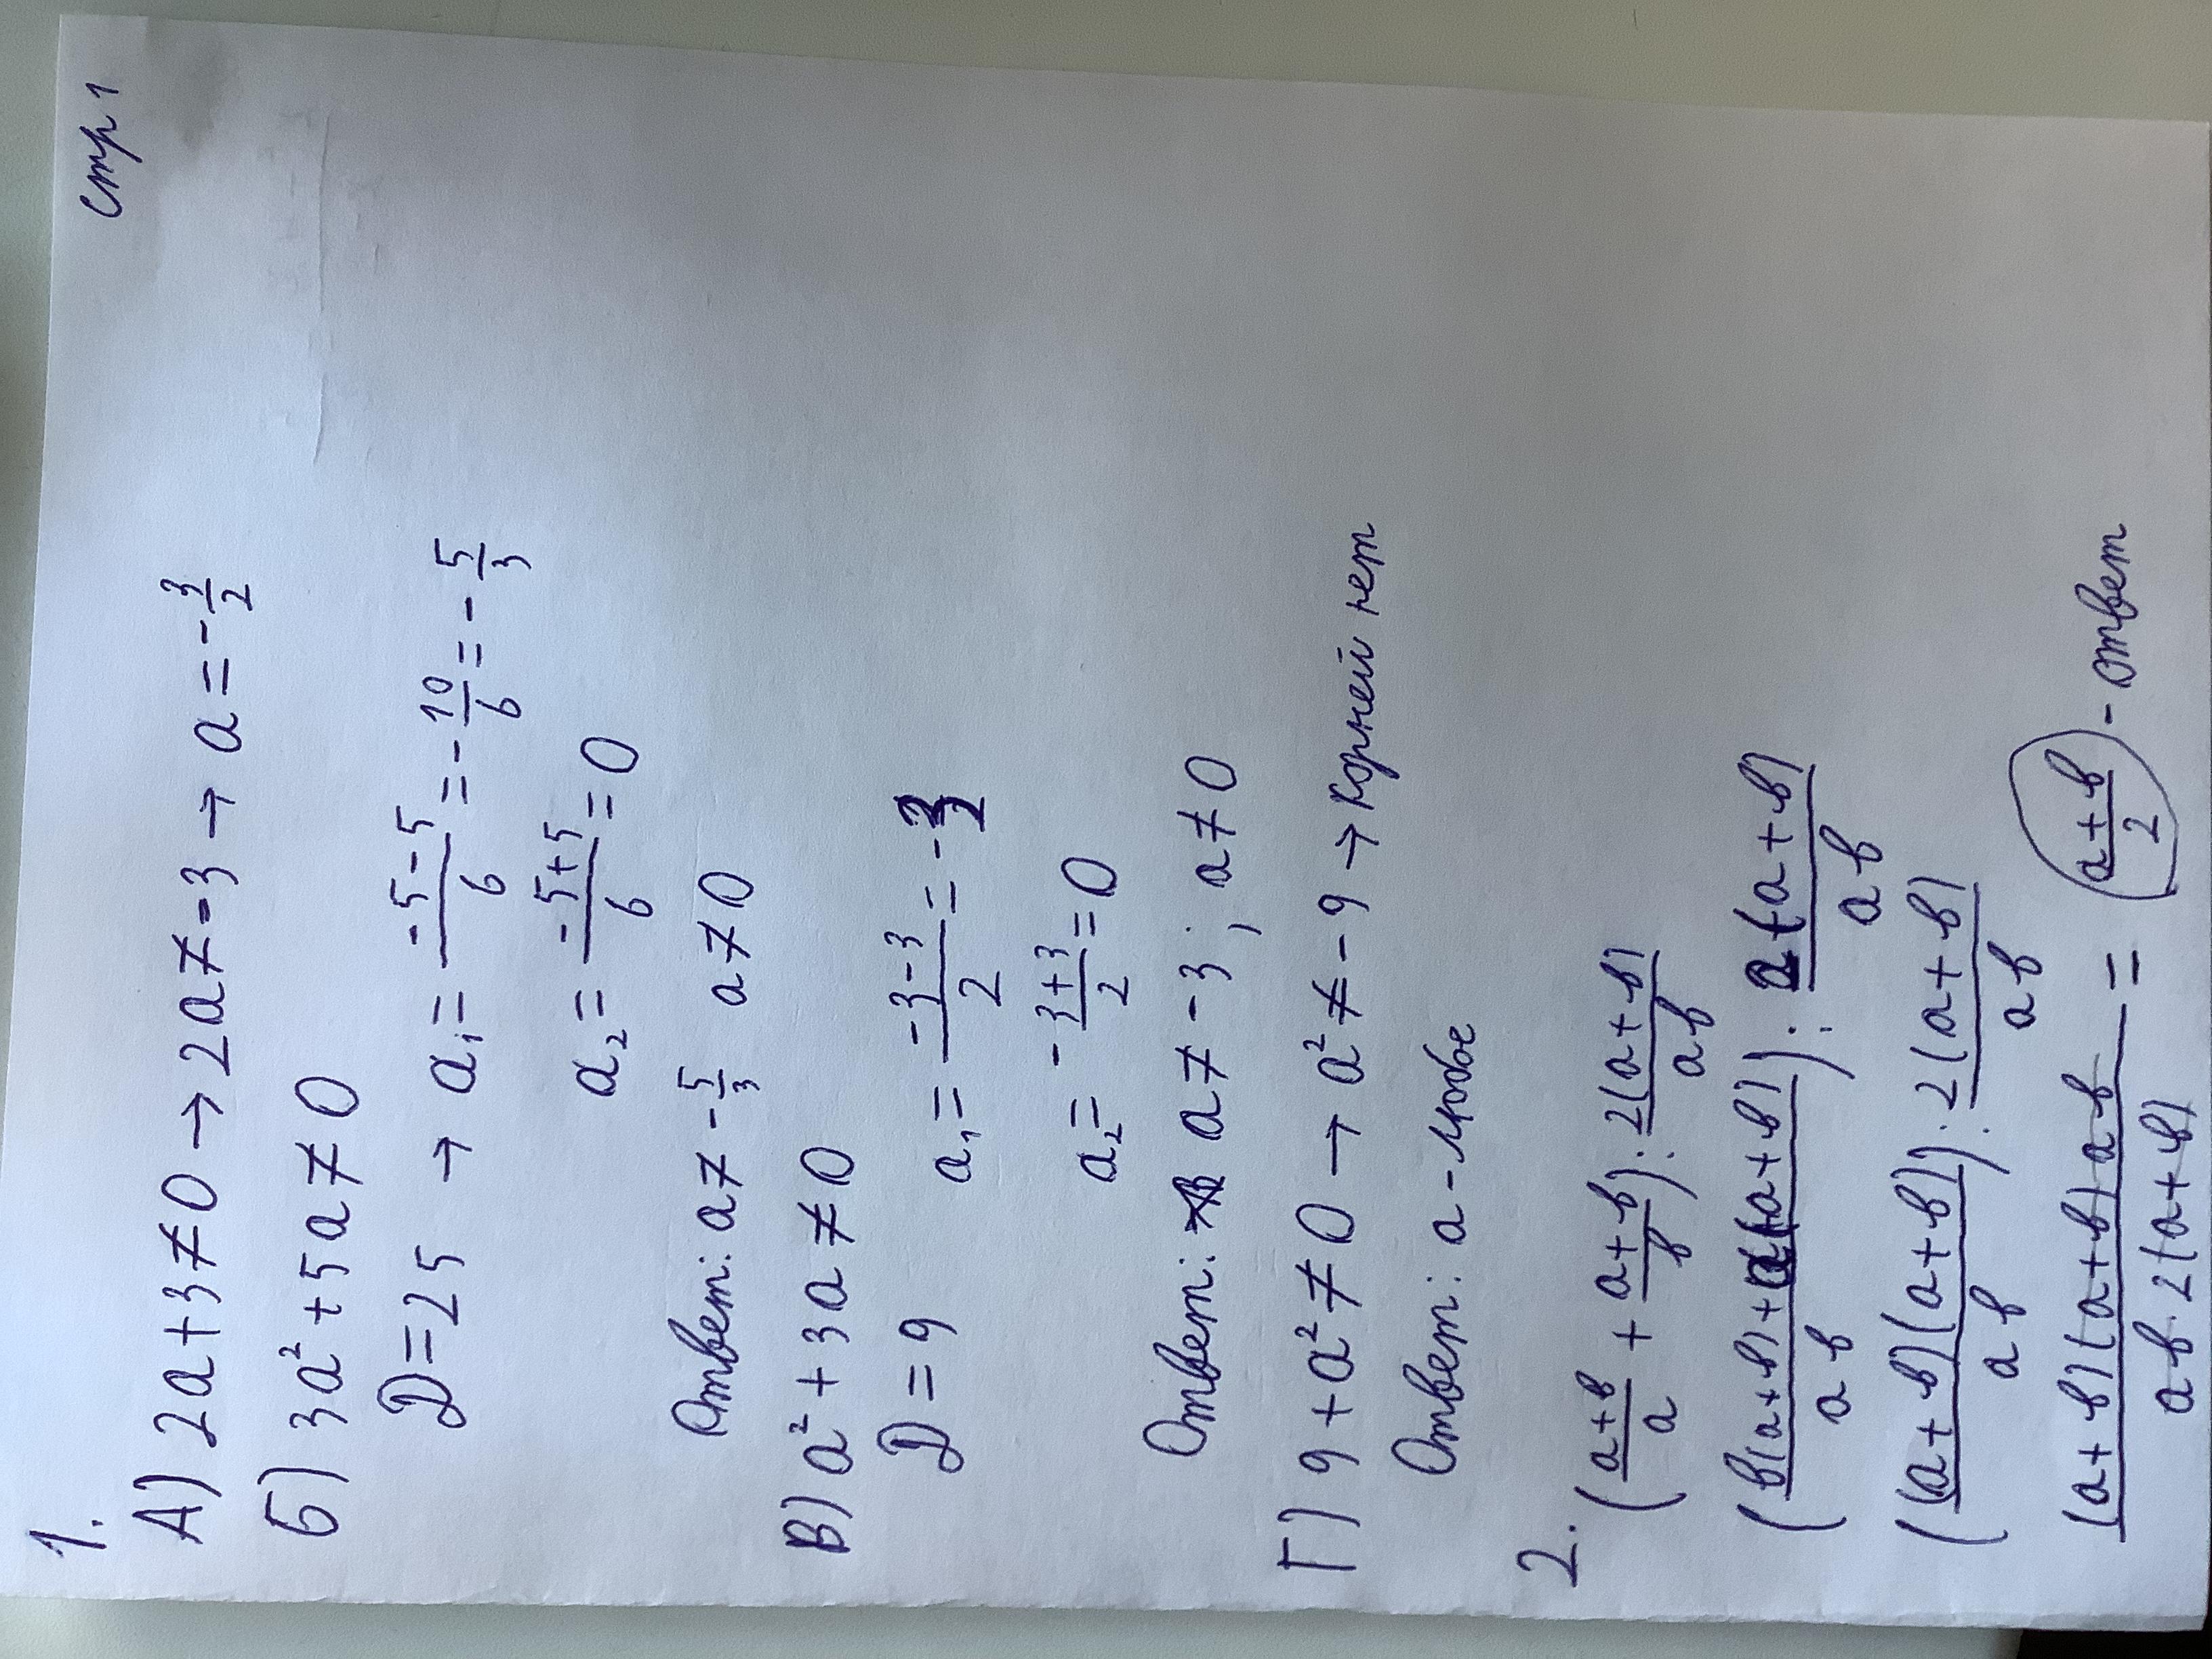 стр 1
1.
А) 2a+3≠0 → 2a≠-3 → a=-3/2
Б) 3a²+5a≠0
D=25 → a₁=(-5-5)/6=-10/6=-5/3
a₂=(-5+5)/6=0
Ответ: a≠-5/3 a≠0
В) a²+3a≠0
D=9 a₁=(-3-3)/2=-3
a₂=(-3+3)/2=0
Ответ: a≠-3; a≠0
Г) 9+a²≠0 → a²≠-9 → корней нет
Ответ: a-любое
2. ((a+b)/a + (a+b)/b) : 2(a+b)/ab
((b(a+b)+a(a+b))/ab) : 2(a+b)/ab
((a+b)(a+b)/ab) : 2(a+b)/ab
(a+b)(a+b)ab/ab·2(a+b) = (a+b)/2 - ответ